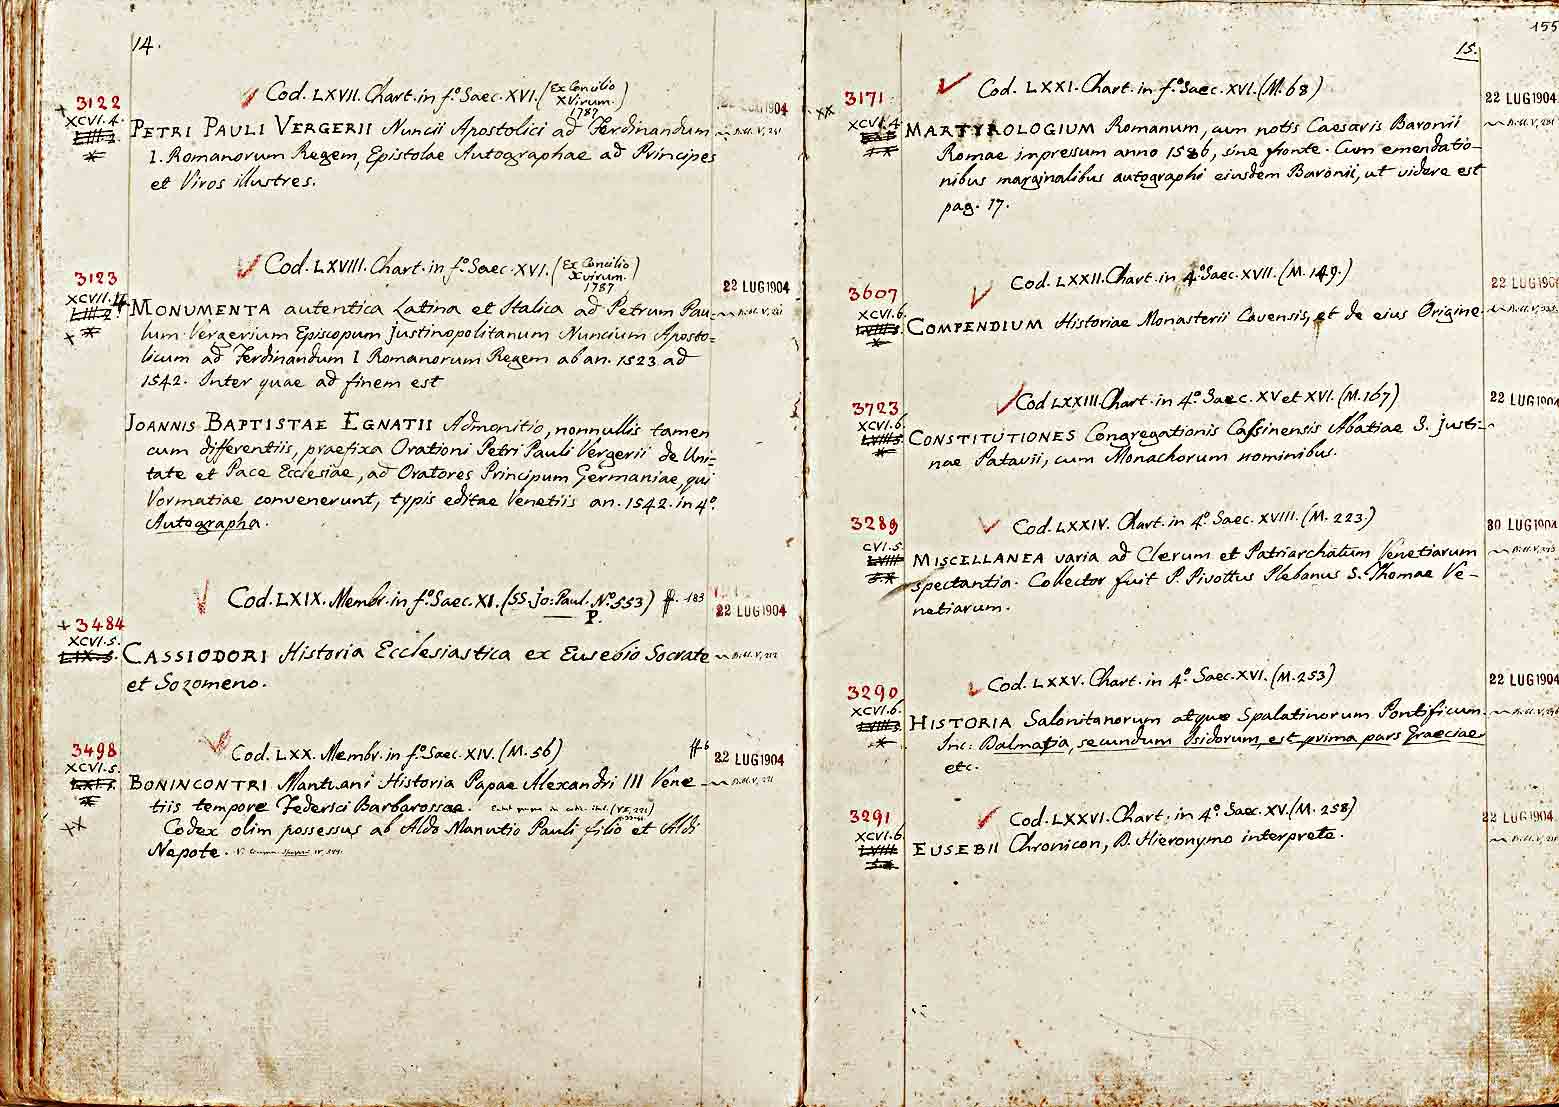 14.
Cod. LXVII. Chart. in f.º Saec. XVI. (Ex Concilio
X Virum.)
1787
3122
XCVI.4.
PETRI PAULI VERGERII Nuncii Apostolici ad Ferdinandum
I. Romanorum Regem, Epistolae Autographae ad Principes
et Viros illustres.
22 LUG 1904
Cod. LXVIII. Chart. in f.º Saec. XVI. (Ex Concilio
Xvirum.)
1787
3123
XCVII.4.
22 LUG 1904
MONUMENTA autentica Latina et Italica ad Petrum Pau=
lum Vergerium Episcopum Justinopolitanum Nuncium Aposto=
licum ad Ferdinandum I Romanorum Regem ab an. 1523 ad
1542. Inter quae ad finem est
JOANNIS BAPTISTAE EGNATII Admonitio, nonnullis tamen
cum differentiis, praefixa Orationi Petri Pauli Vergerii de Uni=
tate et Pace Ecclesiae, ad Oratores Principum Germaniae, qui
Vormatiae convenerunt, typis editae Venetiis an. 1542. in 4.º
Autographa.
Cod. LXIX. Membr. in f.º Saec. XI. (SS. Jo: Paul. N.º 553) ff. 183
P.
22 LUG 1904
+ 3484
XCVI.5.
CASSIODORI Historia Ecclesiastica ex Eusebio Socrate
et Sozomeno.
Cod. LXX. Membr. in f.º Saec. XIV. (M. 56) ff. 6
22 LUG 1904
3498
XCVI.5.
BONINCONTRI Mantuani Historia Papae Alexandri III Vene-
tiis tempore Federici Barbarossae.
Codex olim possessus ab Aldo Manutio Pauli filio et Aldi
Nepote.
155
15.
Cod. LXXI. Chart. in f.º Saec. XVI. (M. 68)
3171
XCVI.4
22 LUG 1904
MARTYROLOGIUM Romanum, cum notis Caesaris Baronii
Romae inpressum anno 1586, sine fronte. Cum emendatio-
nibus marginalibus autographi eiusdem Baronii, ut videre est
pag. 17.
Cod. LXXII. Chart. in 4.º Saec. XVII. (M. 149.)
22 LUG 1904
3607
XCVI.6.
COMPENDIUM Historiae Monasterii Cavensis, et de eius Origine.
Cod. LXXIII. Chart. in 4.º Saec. XV et XVI. (M. 167)
22 LUG 1904
3723
XCVI.6.
CONSTITUTIONES Congregationis Cassinensis Abatiae S. Justi-
nae Patavii, cum Monachorum nominibus.
Cod. LXXIV. Chart. in 4.º Saec. XVIII. (M. 223.)
30 LUG 1904
3289
CVI.5.
MISCELLANEA varia ad Clerum et Patriarchatum Venetiarum
spectantia. Collector fuit P. Pivottus Plebanus S. Thomae Ve-
netiarum.
Cod. LXXV. Chart. in 4.º Saec. XVI. (M. 253)
22 LUG 1904
3290
XCVI.6.
HISTORIA Salonitanorum atque Spalatinorum Pontificum.
Inc: Dalmatia, secundum Isidorum, est prima pars Graeciae
etc.
Cod. LXXVI. Chart. in 4.º Saec. XV. (M. 258)
22 LUG 1904
3291
XCVI.6.
EUSEBII Chronicon, D. Hieronymo interprete.